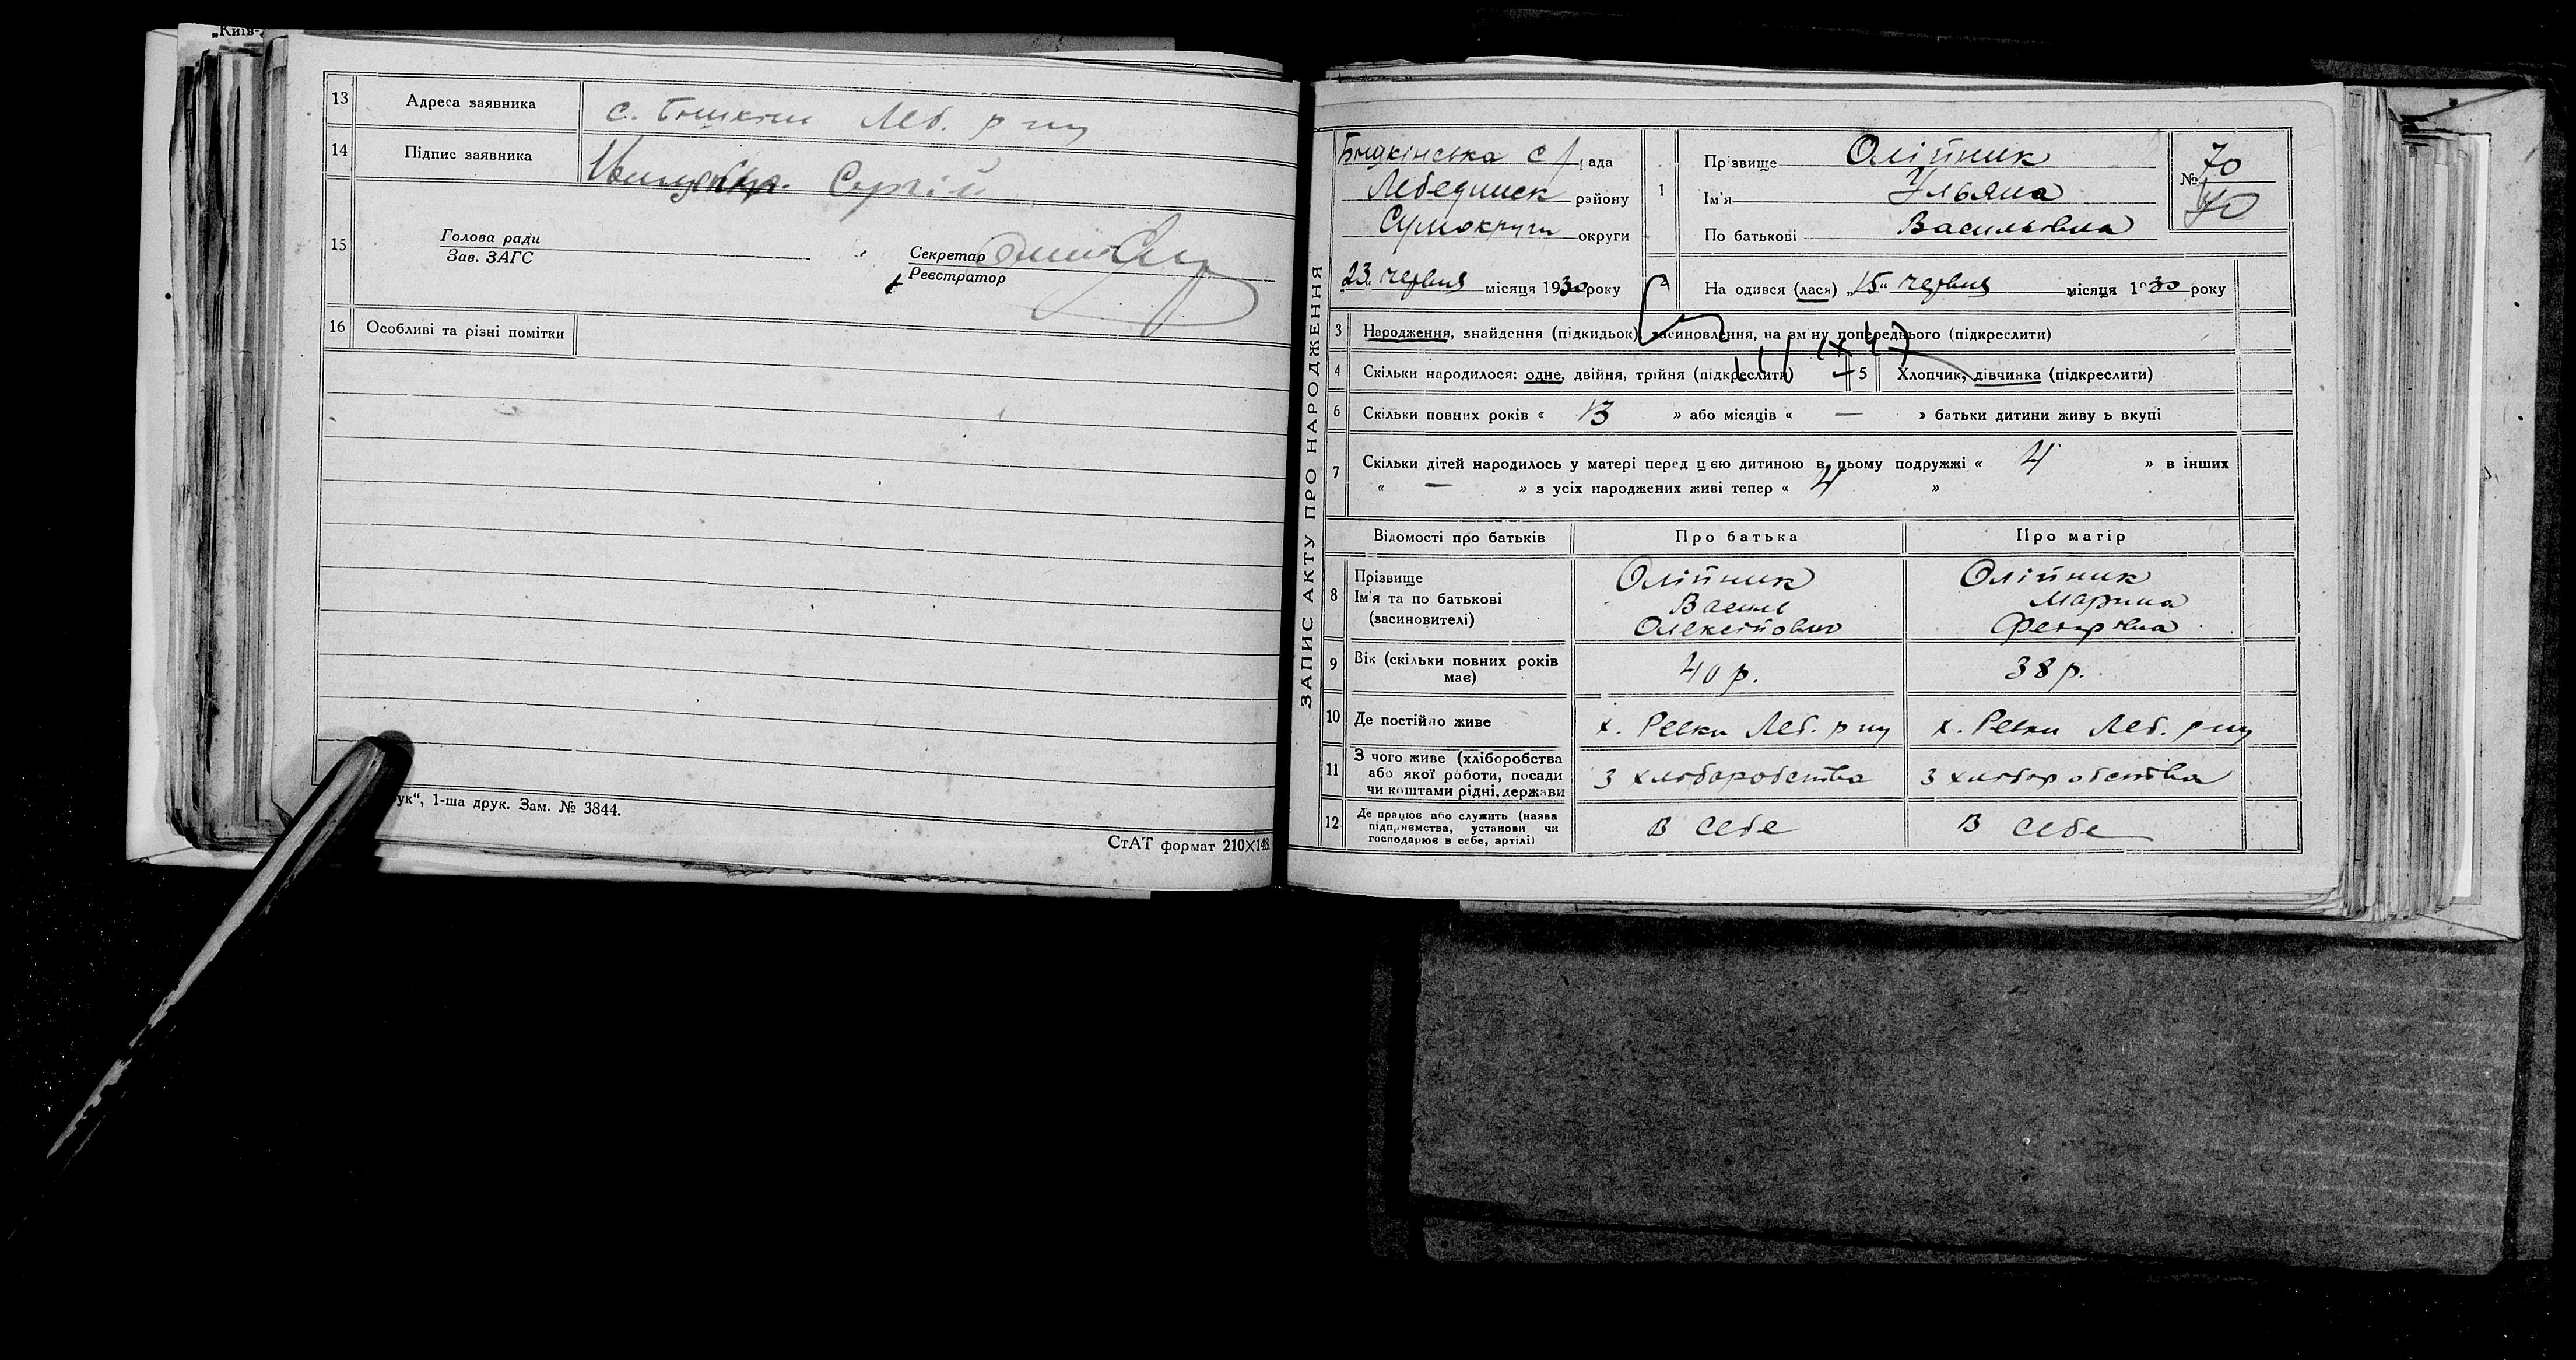 „Київ-
13 Адреса заявника с. Бишкінь Леб. р-ну
14 Підпис заявника Сергій
15 Голова ради Секретар
Зав. ЗАГС Реєстратор
16 Особливі та різні помітки
ук“, 1-ша друк. Зам. № 3844.
СтАТ формат 210×148.
ЗАПИС АКТУ ПРО НАРОДЖЕННЯ
Бишкінська с/рада
Лебединськ району
Сумокруги округи
„23„ червня місяця 1930 року
1 Прізвище Олійник
Ім'я Ульяна
По батькові Васильовна
№ 70
70
2 На одився (лася) „15„ червня місяця 1930 року
3 Народження, знайдення (підкидьок), засиновлення, на зм ну попереднього (підкреслити)
4 Скільки народилося: одне, двійня, трійня (підкреслити) 5 Хлопчик, дівчинка (підкреслити)
6 Скільки повних років « 13 » або місяців « — » батьки дитини живу ь вкупі
7 Скільки дітей народилось у матері перед цією дитиною в цьому подружжі « 4 » в інших
« — » з усіх народжених живі тепер « 4 »
Відомості про батьків Про батька Про матір
8 Прізвище Олійник Олійник
Ім'я та по батькові Василь Марина
(засиновителі) Олексійович Федорівна
9 Вік (скільки повних років має) 40 р. 38 р.
10 Де постійно живе х. Ревки Леб. р-ну х. Ревки Леб. р-ну
11 З чого живе (хліборобства
або якої роботи, посади
чи коштами рідні, держави З хліборобства З хліборобства
12 Де працює або служить (назва
підприємства, установи чи
господарює в себе, артілі) В себе В себе